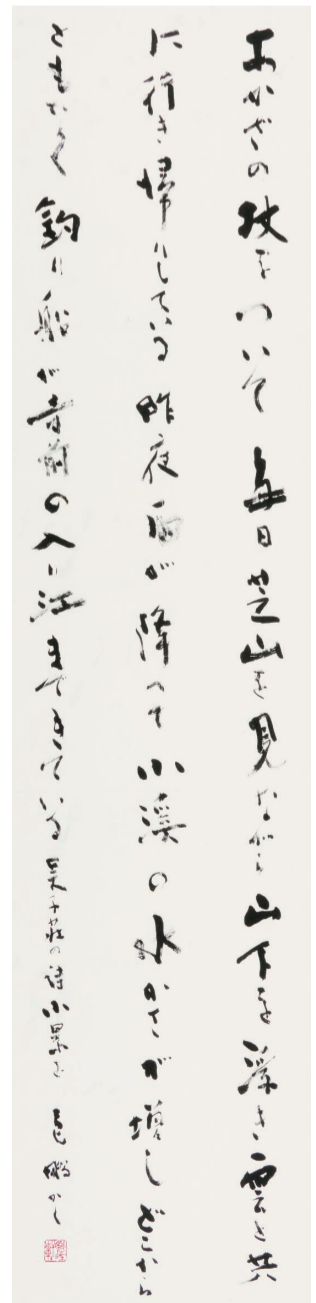 あかざの杖をついて毎日芝山を見ながら山下を浮き雲と共
に行き帰りしている昨夜雨が降って小溪の水かさが増しどこから
ともなく釣り船が寺前の入り江まできている 吴子荘の詩小景を